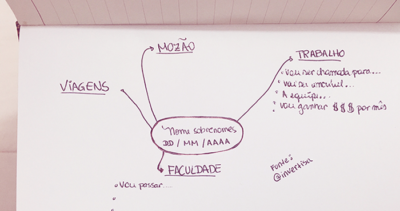 MOZÃO
TRABALHO
• Vou ser chamada para...
• vai ser incrível...
• A equipe...
• Vou ganhar $$$ por mês
VIAGENS
Nome sobrenomes
DD / MM / AAAA
FACULDADE
• Vou passar...
Fonte:
@invertexa